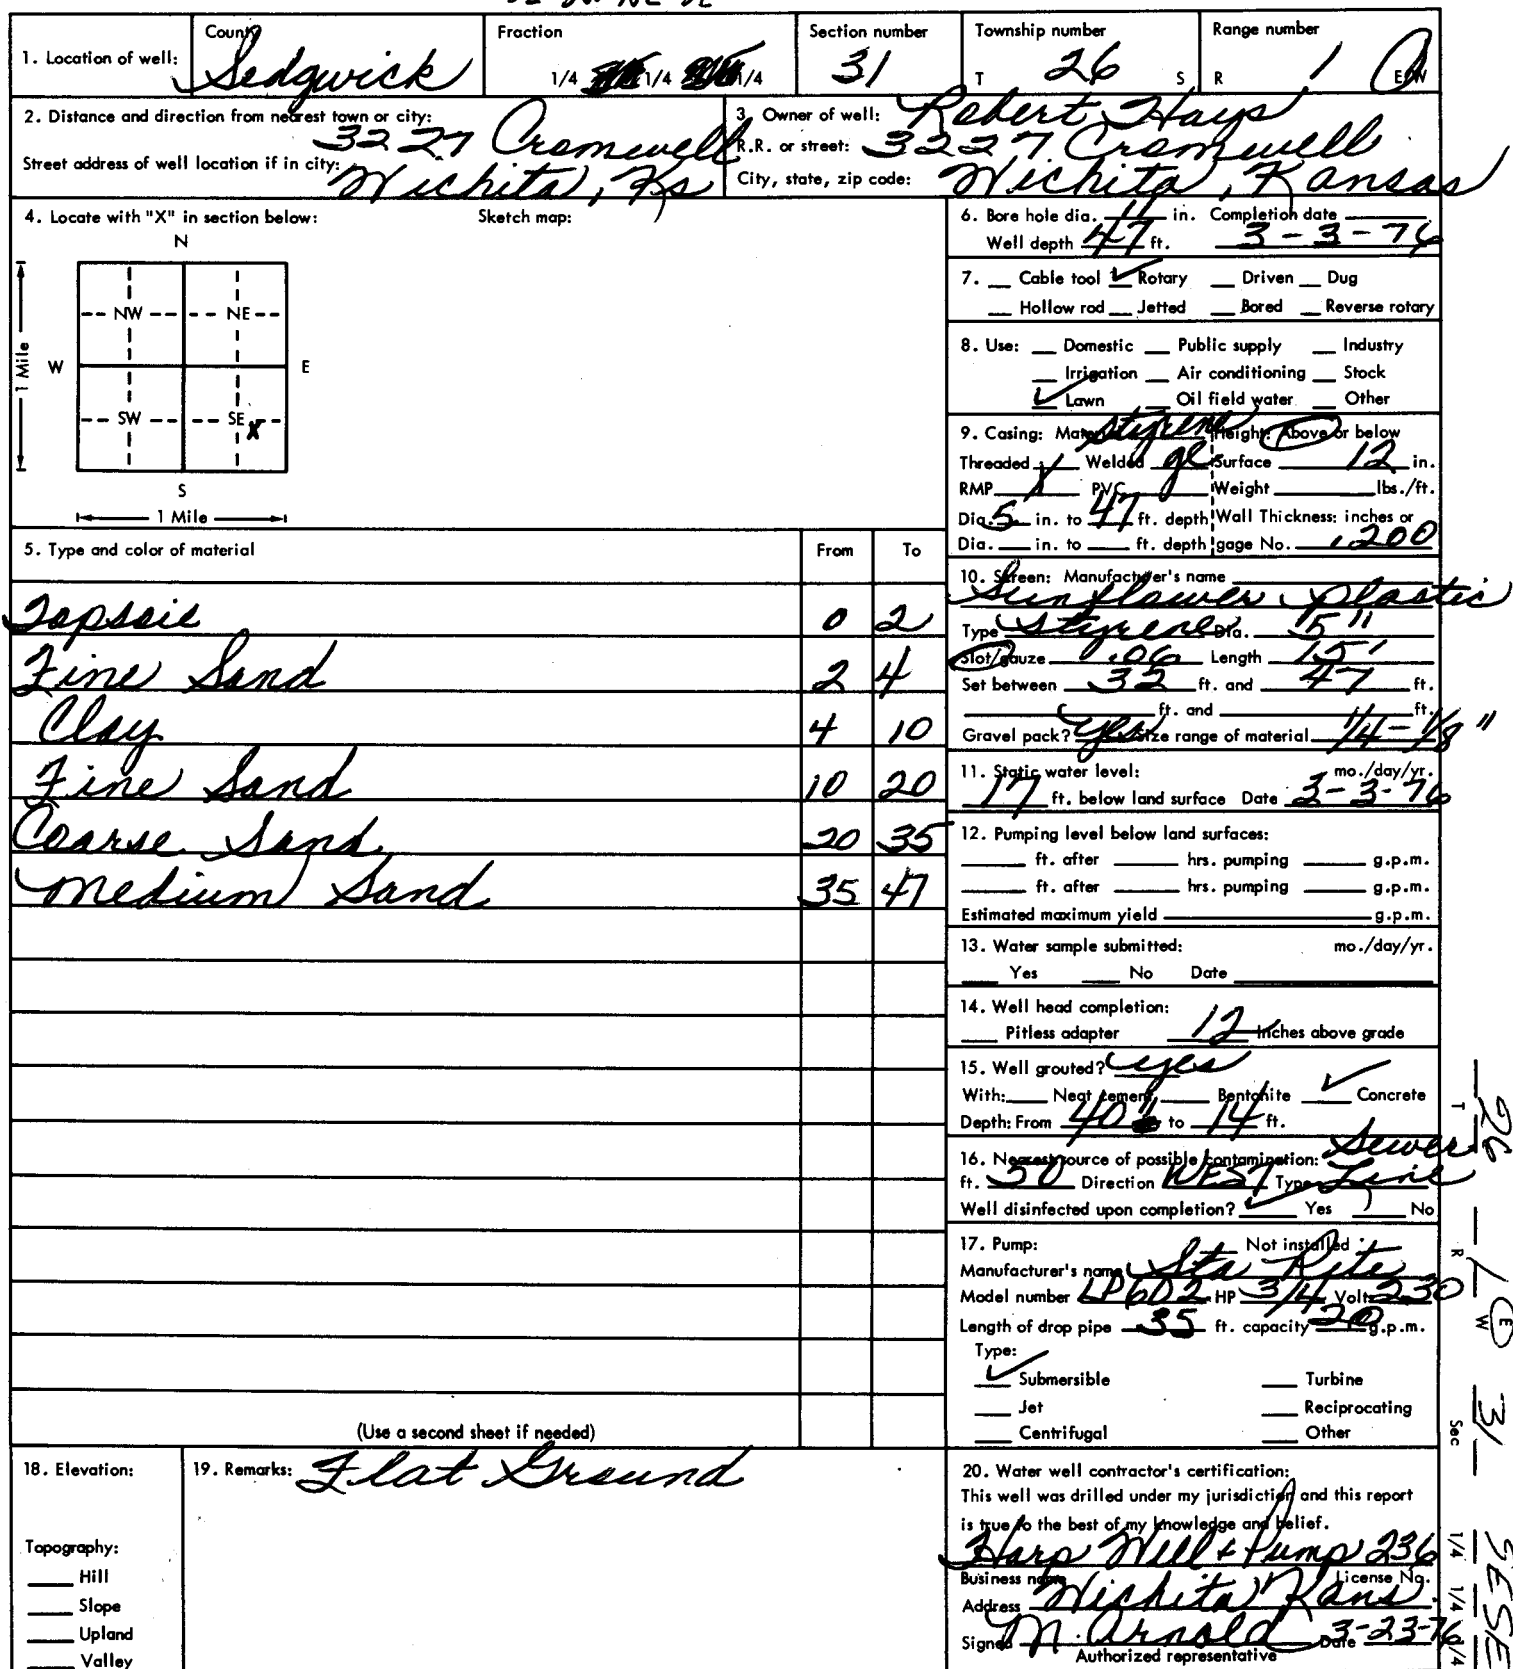 1. Location of well: County Sedgwick Fraction 1/4 1/4 1/4 Section number 31 Township number T 26 S Range number R 1 E/W
2. Distance and direction from nearest town or city: 3227 Cromwell
Street address of well location if in city: Wichita, Ks
3. Owner of well: Robert Hays
R.R. or street: 3227 Cromwell
City, state, zip code: Wichita, Kansas
4. Locate with "X" in section below: Sketch map:
N
NW NE
W E
1 Mile
SW SE X
S
1 Mile
5. Type and color of material From To
Topsoil 0 2
Fine Sand 2 4
Clay 4 10
Fine Sand 10 20
Coarse Sand 20 35
Medium Sand 35 47
(Use a second sheet if needed)
6. Bore hole dia. 11 in. Completion date
Well depth 47 ft. 3-3-76
7. Cable tool ✓ Rotary Driven Dug
Hollow rod Jetted Bored Reverse rotary
8. Use: Domestic Public supply Industry
Irrigation Air conditioning Stock
✓ Lawn Oil field water Other
9. Casing: Material styrene Height: Above or below
Threaded Welded gl Surface 12 in.
RMP X PVC Weight lbs./ft.
Dia. 5 in. to 47 ft. depth Wall Thickness: inches or
Dia. in. to ft. depth gage No. .200
10. Screen: Manufacturer's name
Sunflower Plastic
Type Styrene Dia. 5"
Slot/gauze .06 Length 15'
Set between 32 ft. and 47 ft.
ft. and ft.
Gravel pack? yes Size range of material 1/4-1/8"
11. Static water level: mo./day/yr.
17 ft. below land surface Date 3-3-76
12. Pumping level below land surfaces:
ft. after hrs. pumping g.p.m.
ft. after hrs. pumping g.p.m.
Estimated maximum yield g.p.m.
13. Water sample submitted: mo./day/yr.
Yes No Date
14. Well head completion:
Pitless adapter 12 Inches above grade
15. Well grouted? yes
With: Neat cement Bentonite ✓ Concrete
Depth: From 40" to 14 ft.
16. Nearest source of possible contamination: Sewer
ft. 50 Direction WEST Type Line
Well disinfected upon completion? ✓ Yes No
17. Pump: Not installed
Manufacturer's name Sta Rite
Model number LP602 HP 3/4 Volts 230
Length of drop pipe 35 ft. capacity 20 g.p.m.
Type:
✓ Submersible Turbine
Jet Reciprocating
Centrifugal Other
18. Elevation:
Topography:
Hill
Slope
Upland
Valley
19. Remarks: Flat Ground
20. Water well contractor's certification:
This well was drilled under my jurisdiction and this report
is true to the best of my knowledge and belief.
Harp Well & Pump 236
Business name License No.
Address Wichita Kans.
Signed M. Arnold Date 3-23-76
Authorized representative
T 26 R 1 E W Sec 31 1/4 1/4 1/4 SESE